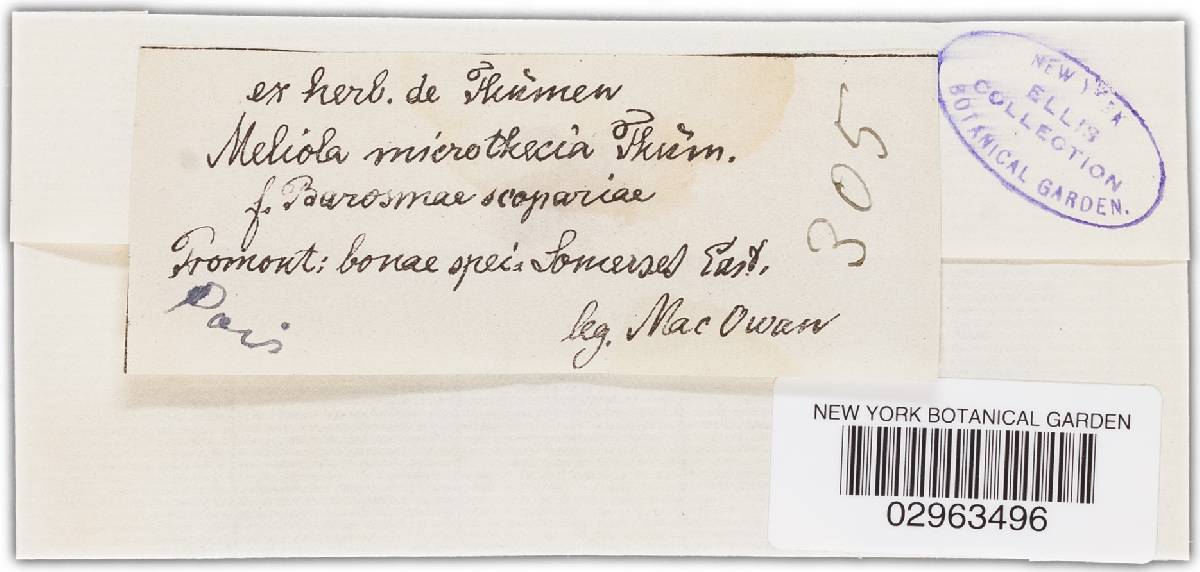 ex herb. de Thümen
Meliola microthecia Thüm.
f. Barosmae scopariae
Promont: bonae spei: Somerset East.
leg. Mac Owan
Paris
305
NEW YORK
ELLIS
COLLECTION
BOTANICAL GARDEN.
NEW YORK BOTANICAL GARDEN
02963496